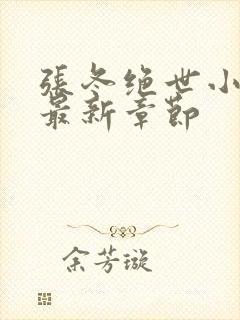 張冬绝世小
最新章節
余芳璇